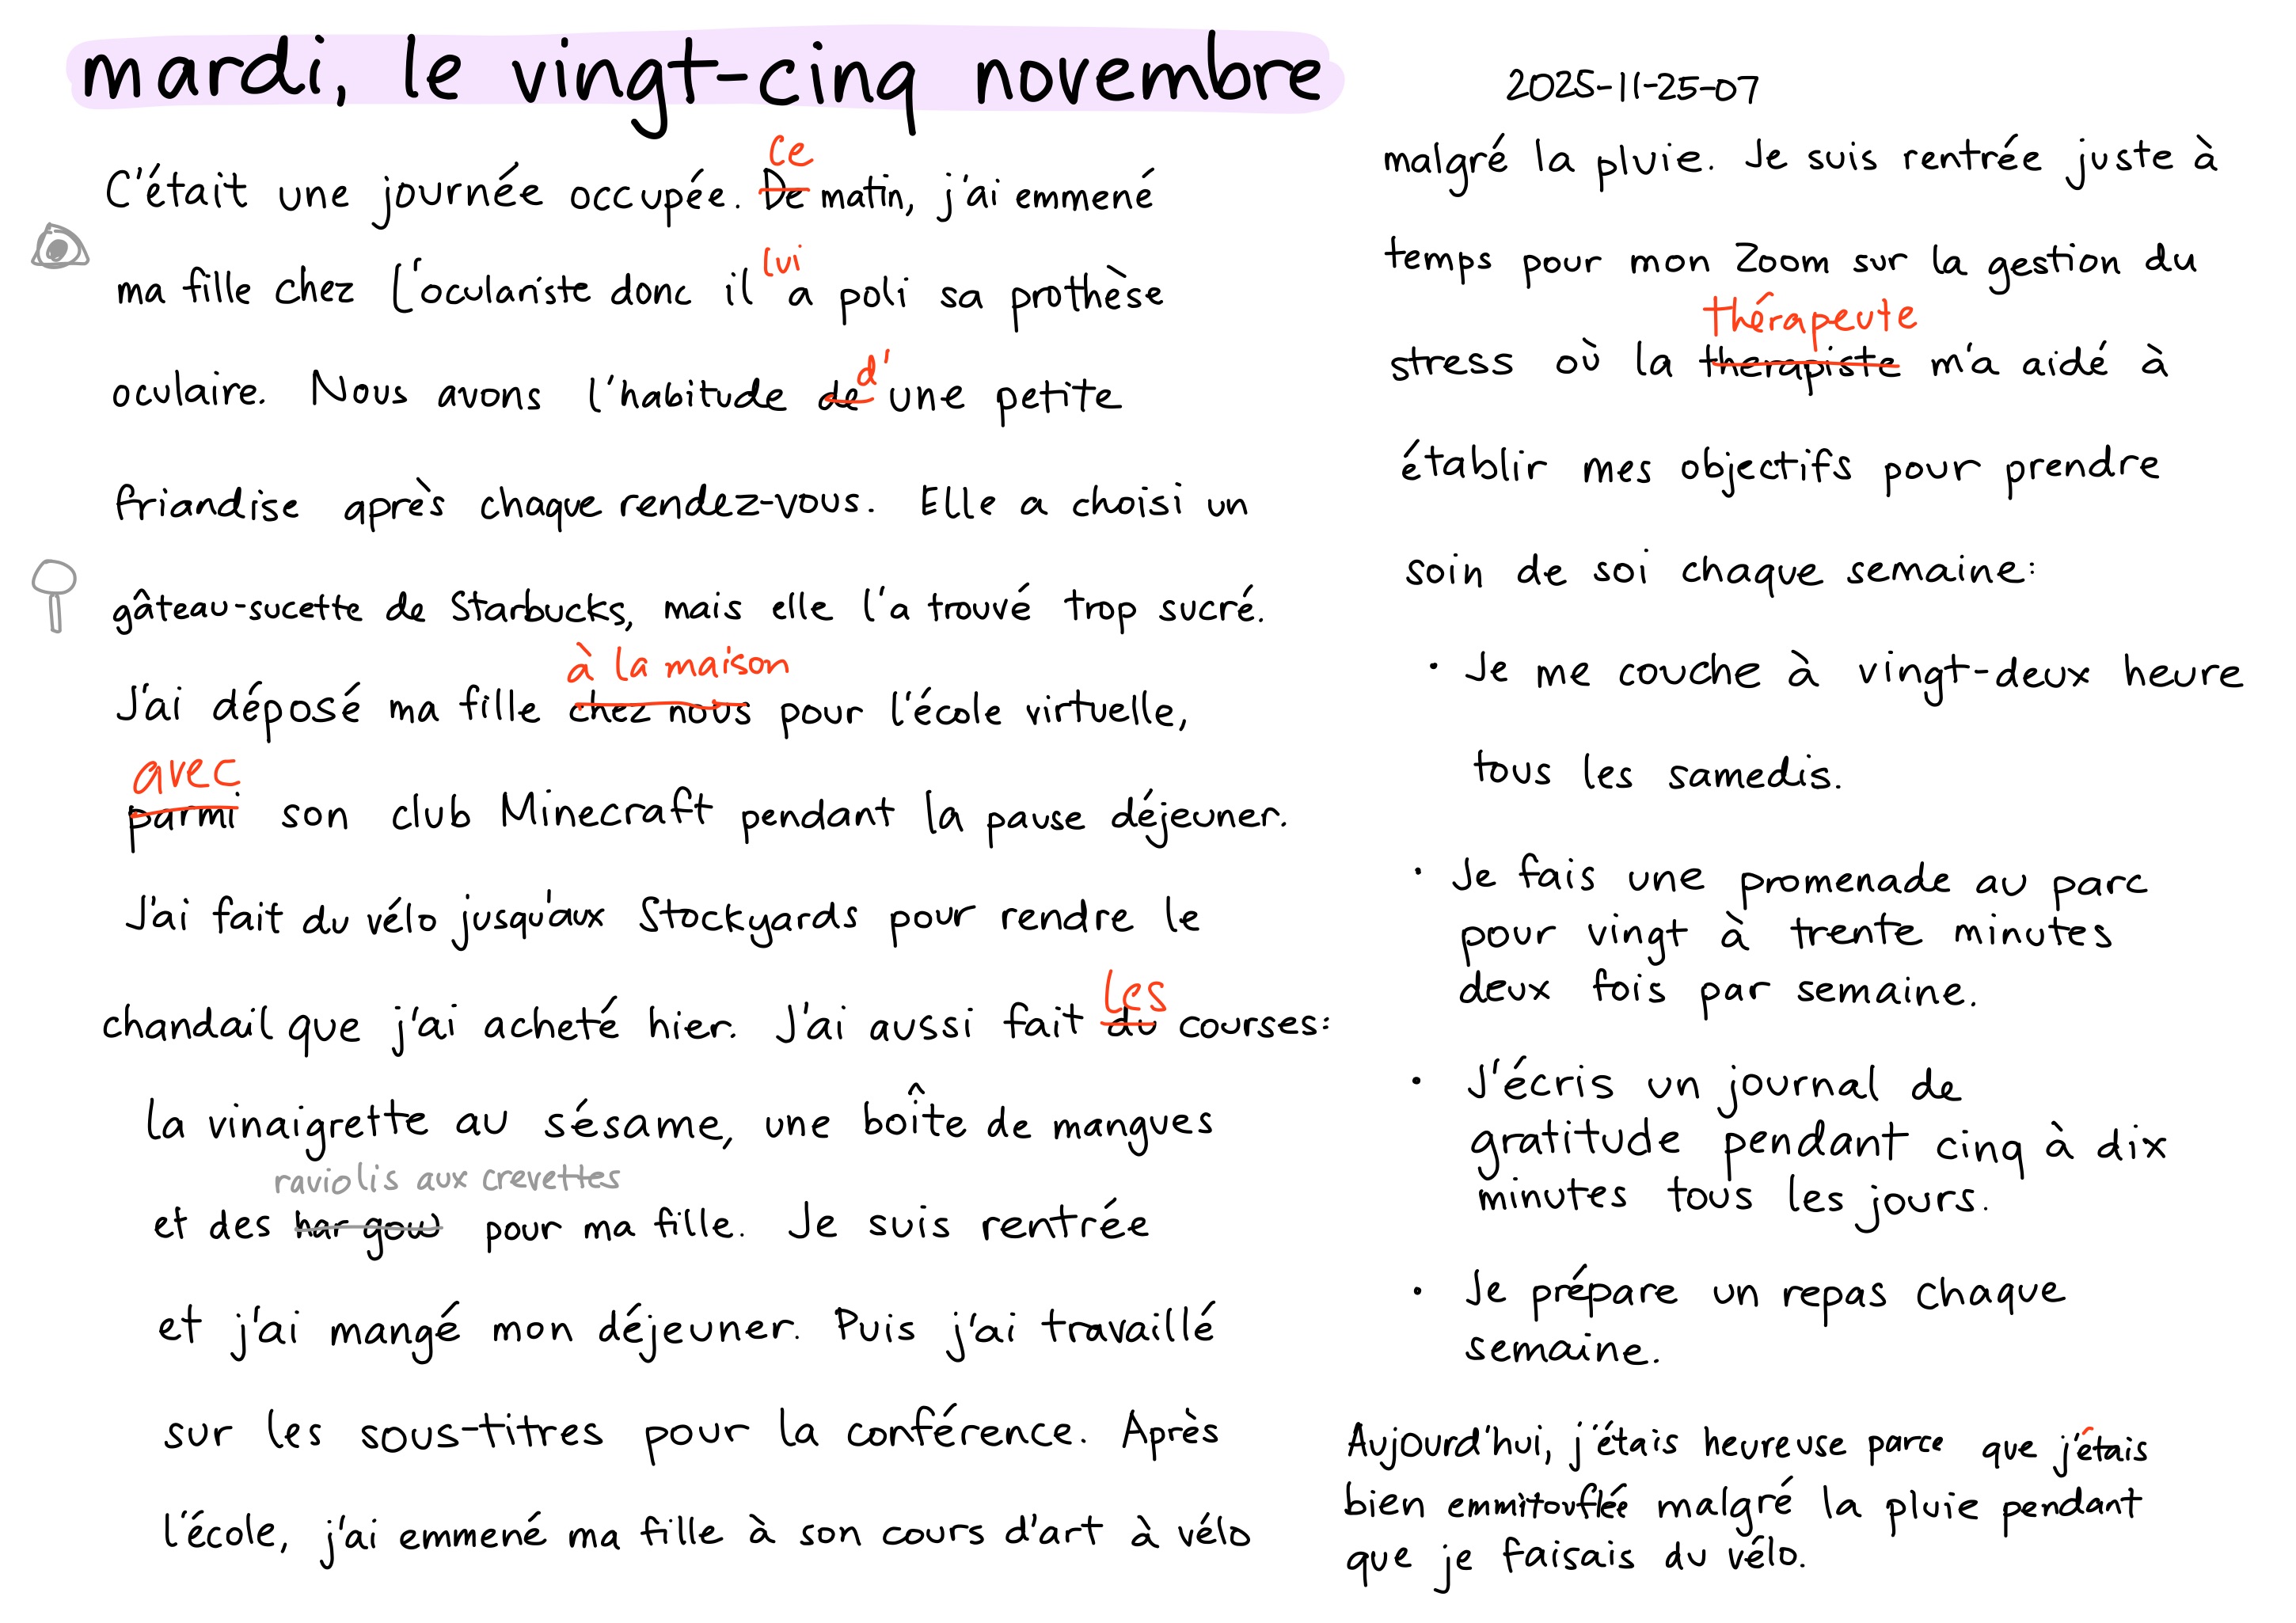 mardi, le vingt-cinq novembre
2025-11-25-07
ce
C'était une journée occupée. De matin, j'ai emmené
lui
ma fille chez l'oculariste donc il a poli sa prothèse
d'
oculaire. Nous avons l'habitude de une petite
friandise après chaque rendez-vous. Elle a choisi un
gâteau-sucette de Starbucks, mais elle l'a trouvé trop sucré.
à la maison
J'ai déposé ma fille chez nous pour l'école virtuelle,
avec
parmi son club Minecraft pendant la pause déjeuner.
J'ai fait du vélo jusqu'aux Stockyards pour rendre le
les
chandail que j'ai acheté hier. J'ai aussi fait du courses:
la vinaigrette au sésame, une boîte de mangues
raviolis aux crevettes
et des har gow pour ma fille. Je suis rentrée
et j'ai mangé mon déjeuner. Puis j'ai travaillé
sur les sous-titres pour la conférence. Après
l'école, j'ai emmené ma fille à son cours d'art à vélo
malgré la pluie. Je suis rentrée juste à
temps pour mon Zoom sur la gestion du
thérapeute
stress où la therapiste m'a aidé à
établir mes objectifs pour prendre
soin de soi chaque semaine:
• Je me couche à vingt-deux heure
tous les samedis.
• Je fais une promenade au parc
pour vingt à trente minutes
deux fois par semaine.
• J'écris un journal de
gratitude pendant cinq à dix
minutes tous les jours.
• Je prépare un repas chaque
semaine.
Aujourd'hui, j'étais heureuse parce que j'étais
bien emmitouflée malgré la pluie pendant
que je faisais du vélo.